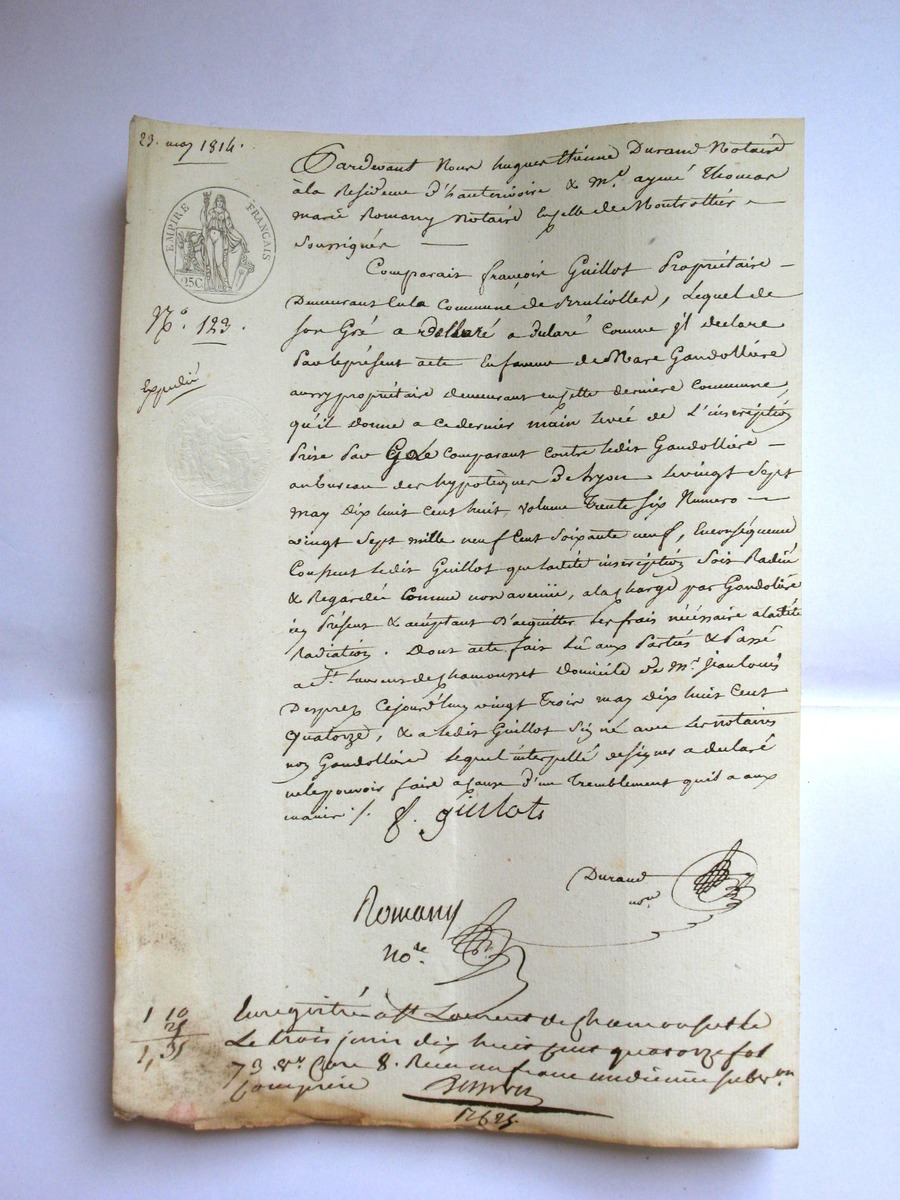 23. may 1814.
EMPIRE FRANÇAIS
25C
N.o 123.
Expédié
Pardevant Nous hugues Etienne Durand Notaire
à la Residence d'hauterivoire & M.e aymé Thomas
marie Romany Notaire En celle de Montrottier
Soussignés
Comparait françois Guillot Propriétaire
Demeurant En la Commune de Brulliolles, Lequel de
son Gré a déclaré comme jl declare
Par le présent acte En faveur de Marc Gandollière
aussy propriétaire demeurant en cette dernière Commune,
qu'il donne a ce dernier main Levée de L'inscription
Prise Par Le Comparant contre ledit Gandollière
au bureau des hypotèques De Lyon Le vingt Sept
may Dix huit Cent huit, volume Trente Six Numero
vingt Sept mille neuf Cent Soixante neuf, En conséquence
Consent ledit Guillot que ladite inscription Soit Radiée
& Regardée Comme non avenüe, a la charge par Gandolière
icy Présent & acceptant D'acquitter Les frais nécessaire a ladite
Radiation. Dont acte fait Lû aux Parties & Passé
a St. Laurent de chamousset Domicile de M.r Jean Louis
Desprez Cejourd'huy vingt Trois may Dix huit Cent
Quatorze, & a ledit Guillot Signé avec Les notaires
non Gandollière Lequel interpellé de Signer a déclaré
ne le pouvoir faire a Cause D'un Tremblement qu'il a aux
mains ./.
f. guillot
Durand
no.re
Romany
No.re
1 10
1, 35
Enregistré a St Laurent de Chamousset Le
Le trois juin dix huit cent quatorze fol
73 v.o Case 8. Recu un franc un décime subv.on
Comprise